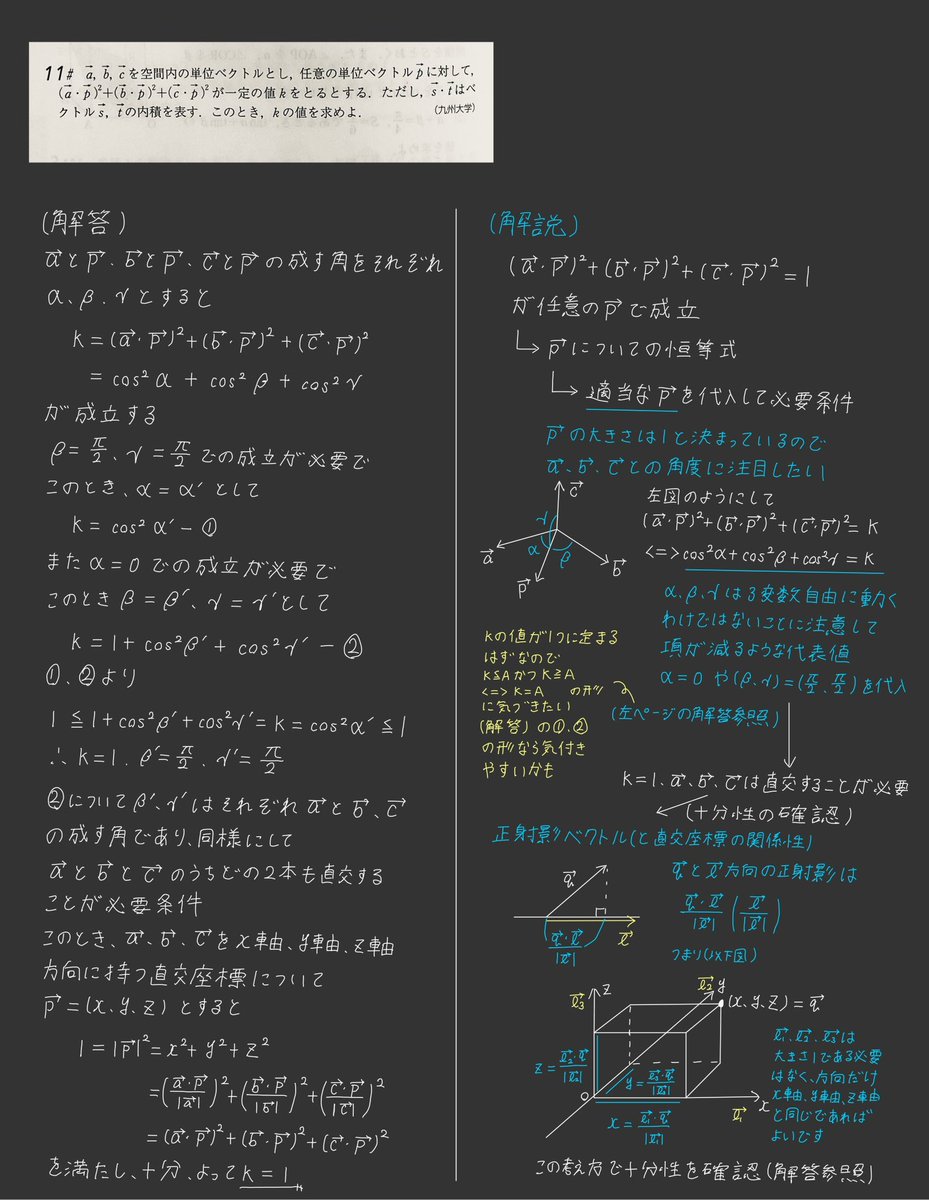 11# a⃗, b⃗, c⃗ を空間内の単位ベクトルとし，任意の単位ベクトル p⃗ に対して，
(a⃗・p⃗)²+(b⃗・p⃗)²+(c⃗・p⃗)² が一定の値 k をとるとする．ただし，s⃗・t⃗ はベ
クトル s⃗，t⃗ の内積を表す．このとき，k の値を求めよ．
(九州大学)
(解答)
a⃗とp⃗、b⃗とp⃗、c⃗とp⃗の成す角をそれぞれ
α、β、γとすると
k = (a⃗・p⃗)²+(b⃗・p⃗)²+(c⃗・p⃗)²
= cos²α + cos²β + cos²γ
が成立する
β=π/2、γ=π/2での成立が必要で
このとき、α=α′として
k = cos²α′ − ①
またα=0での成立が必要で
このときβ=β′、γ=γ′として
k = 1+cos²β′+cos²γ′ − ②
①、②より
1≦1+cos²β′+cos²γ′=k=cos²α′≦1
∴k=1、β′=π/2、γ′=π/2
②についてβ′、γ′はそれぞれa⃗とb⃗、c⃗
の成す角であり、同様にして
a⃗とb⃗とc⃗のうちどの2本も直交する
ことが必要条件
このとき、a⃗、b⃗、c⃗をx軸、y軸、z軸
方向に持つ直交座標について
p⃗=(x, y, z)とすると
1=|p⃗|²=x²+y²+z²
=(a⃗・p⃗/|a⃗|)²+(b⃗・p⃗/|b⃗|)²+(c⃗・p⃗/|c⃗|)²
=(a⃗・p⃗)²+(b⃗・p⃗)²+(c⃗・p⃗)²
を満たし、十分、よってk=1
(解説)
(a⃗・p⃗)²+(b⃗・p⃗)²+(c⃗・p⃗)²=1
が任意のp⃗で成立
p⃗についての恒等式
適当なp⃗を代入して必要条件
p⃗の大きさは1と決まっているので
a⃗、b⃗、c⃗との角度に注目したい
c⃗
γ
a⃗
α
β
p⃗
b⃗
左図のようにして
(a⃗・p⃗)²+(b⃗・p⃗)²+(c⃗・p⃗)²=k
<=>cos²α+cos²β+cos²γ=k
α、β、γは3変数自由に動く
わけではないことに注意して
項が減るような代表値
α=0や(β、γ)=(π/2、π/2)を代入
kの値が1つに定まる
はずなので
k≦Aかつk≧A
<=>k=A の形
に気づきたい
(解答)の①、②
の形なら気付き
やすいかも
(左ページの解答参照)
k=1、a⃗、b⃗、c⃗は直交することが必要
(十分性の確認)
正射影ベクトル(と直交座標の関係性)
q⃗
q⃗・l⃗/|l⃗|
l⃗
q⃗とl⃗方向の正射影は
q⃗・l⃗/|l⃗| (l⃗/|l⃗|)
つまり(以下図)
l₃⃗
z
l₂⃗
y
(x, y, z)=q⃗
z=l₃⃗・q⃗/|l₃⃗|
y=l₂⃗・q⃗/|l₂⃗|
O
x=l₁⃗・q⃗/|l₁⃗|
l₁⃗
x
l₁⃗、l₂⃗、l₃⃗は
大きさ1である必要
はなく、方向だけ
x軸、y軸、z軸
と同じであれば
よいです
この考え方で十分性を確認(解答参照)